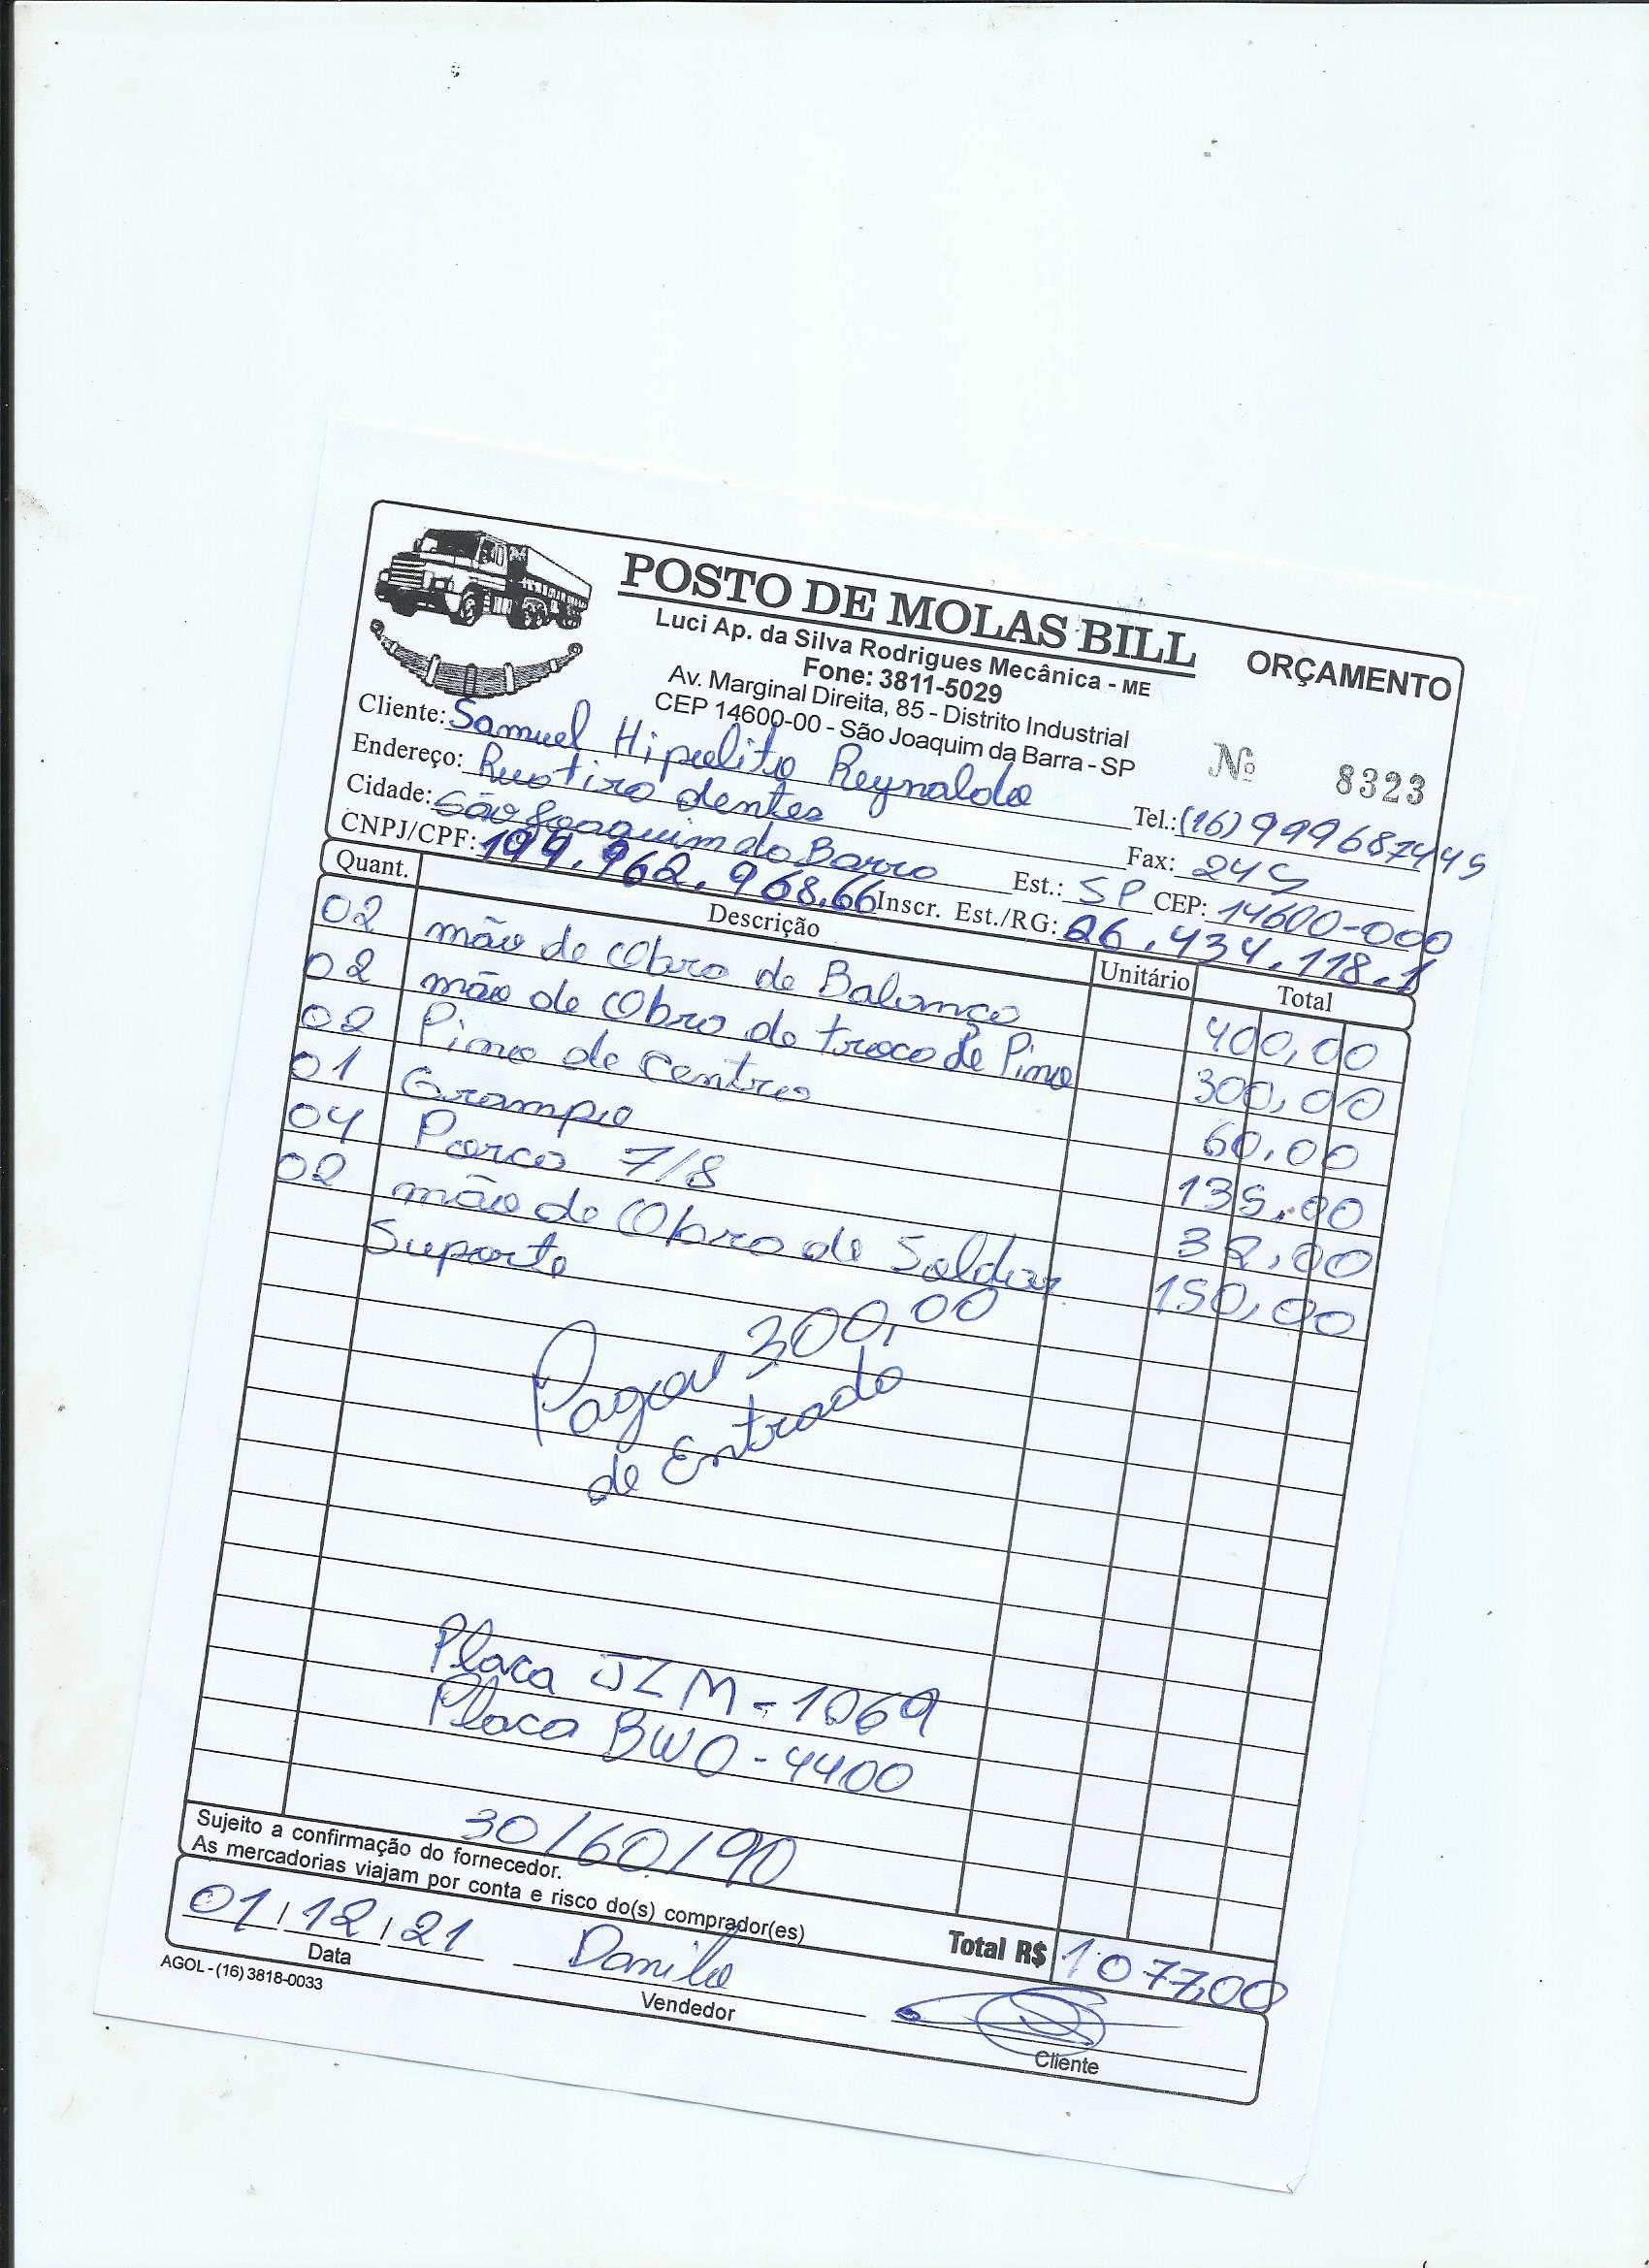 POSTO DE MOLAS BILL
ORÇAMENTO
Luci Ap. da Silva Rodrigues Mecânica - ME
Fone: 3811-5029
Av. Marginal Direita, 85 - Distrito Industrial
CEP 14600-00 - São Joaquim da Barra - SP
Nº 8323
Cliente: Samuel Hipolito Reynaldo
Endereço: Rua tiradentes Tel.: (16) 999687445
Cidade: São Joaquim da Barra Fax: 245
Est.: SP CEP: 14600-000
CNPJ/CPF: 199.962.968.66 Inscr. Est./RG: 26.434.118.1
Quant. Descrição Unitário Total
02 mão de Obra de Balança 400,00
02 mão de Obra de troca de Pino 300,00
02 Pino de Centro 60,00
01 Grampo 135,00
04 Porca 7/8 32,00
02 mão de Obra de Soldar 150,00
Suporte
Pagou 300,00
de Entrada
Placa JZM-1069
Placa BWO-4400
30/60/90
Sujeito a confirmação do fornecedor.
As mercadorias viajam por conta e risco do(s) comprador(es)
Total R$ 1077,00
01/12/21 Danilo
Data Vendedor Cliente
AGOL - (16) 3818-0033